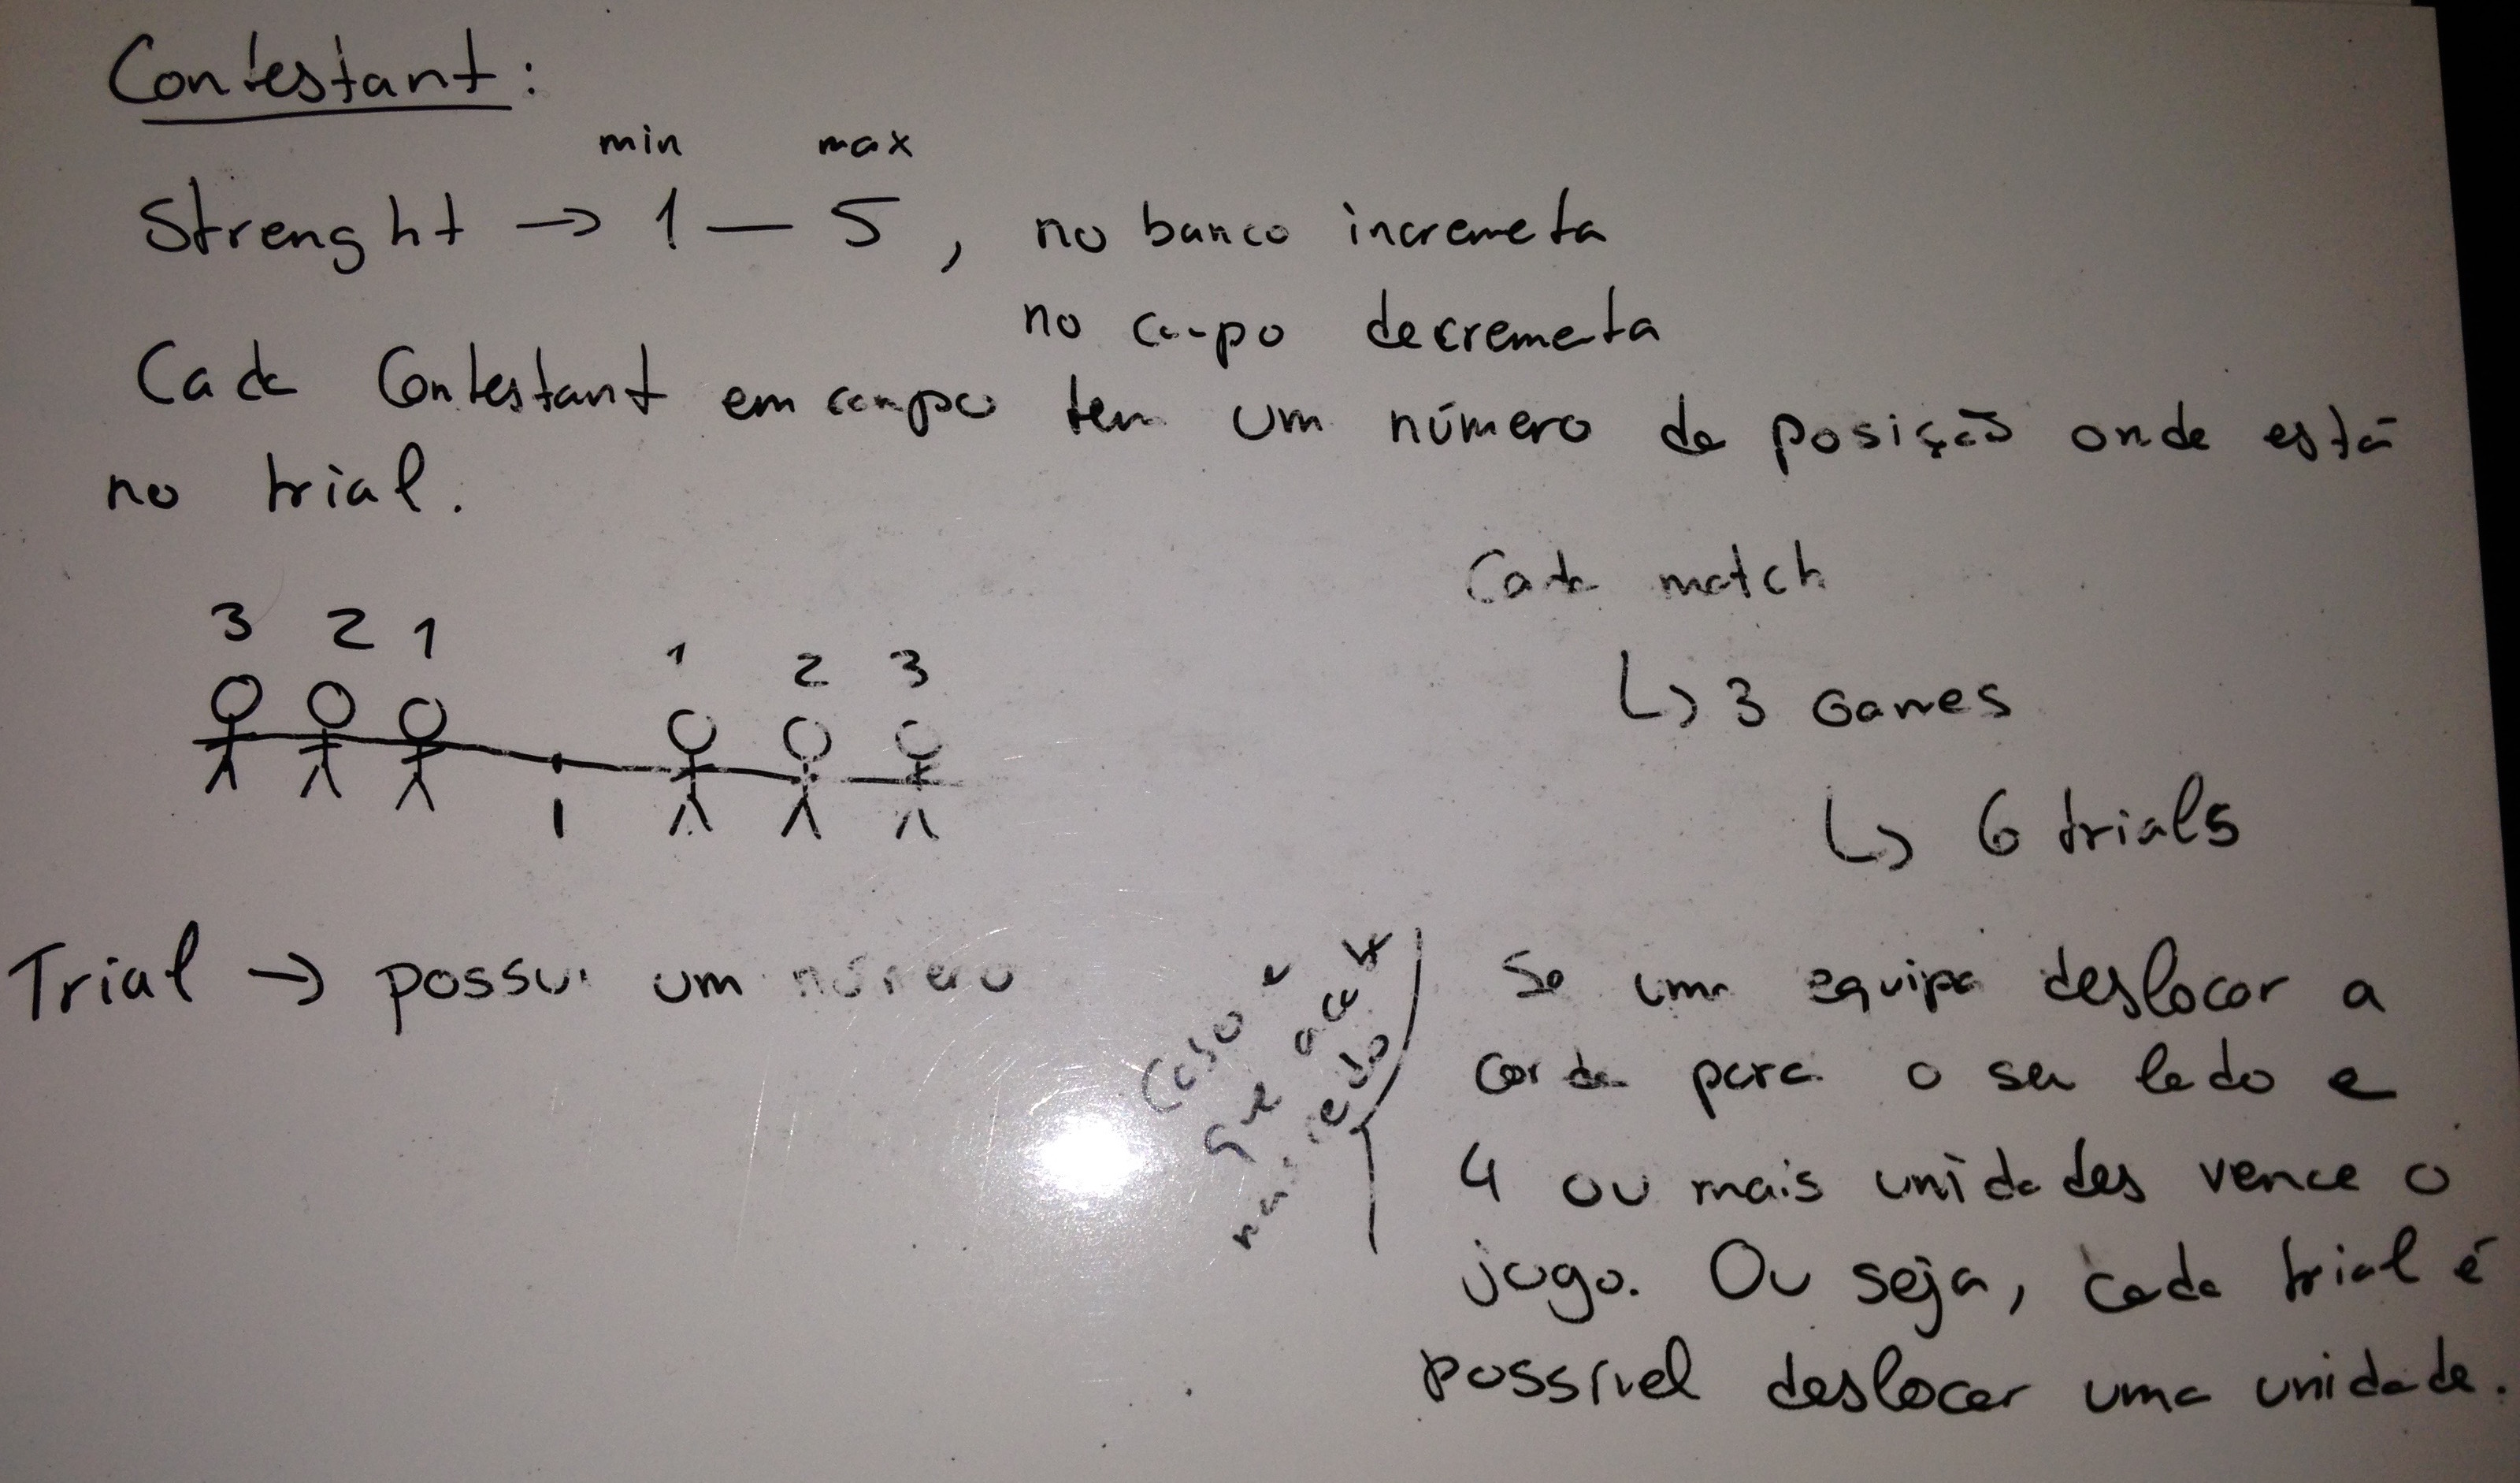 Contestant:
min max
Strenght → 1 — 5, no banco incremeta
no campo decremeta
Cada Contestant em campo tem um número da posição onde está
no trial.
3 2 1 1 2 3
Cada match
↳ 3 Games
↳ 6 trials
Trial → possui um número
Caso
que
Se uma equipa deslocar a
corda para o seu lado e
4 ou mais unidades vence o
jogo. Ou seja, cada trial é
possível deslocar uma unidade.